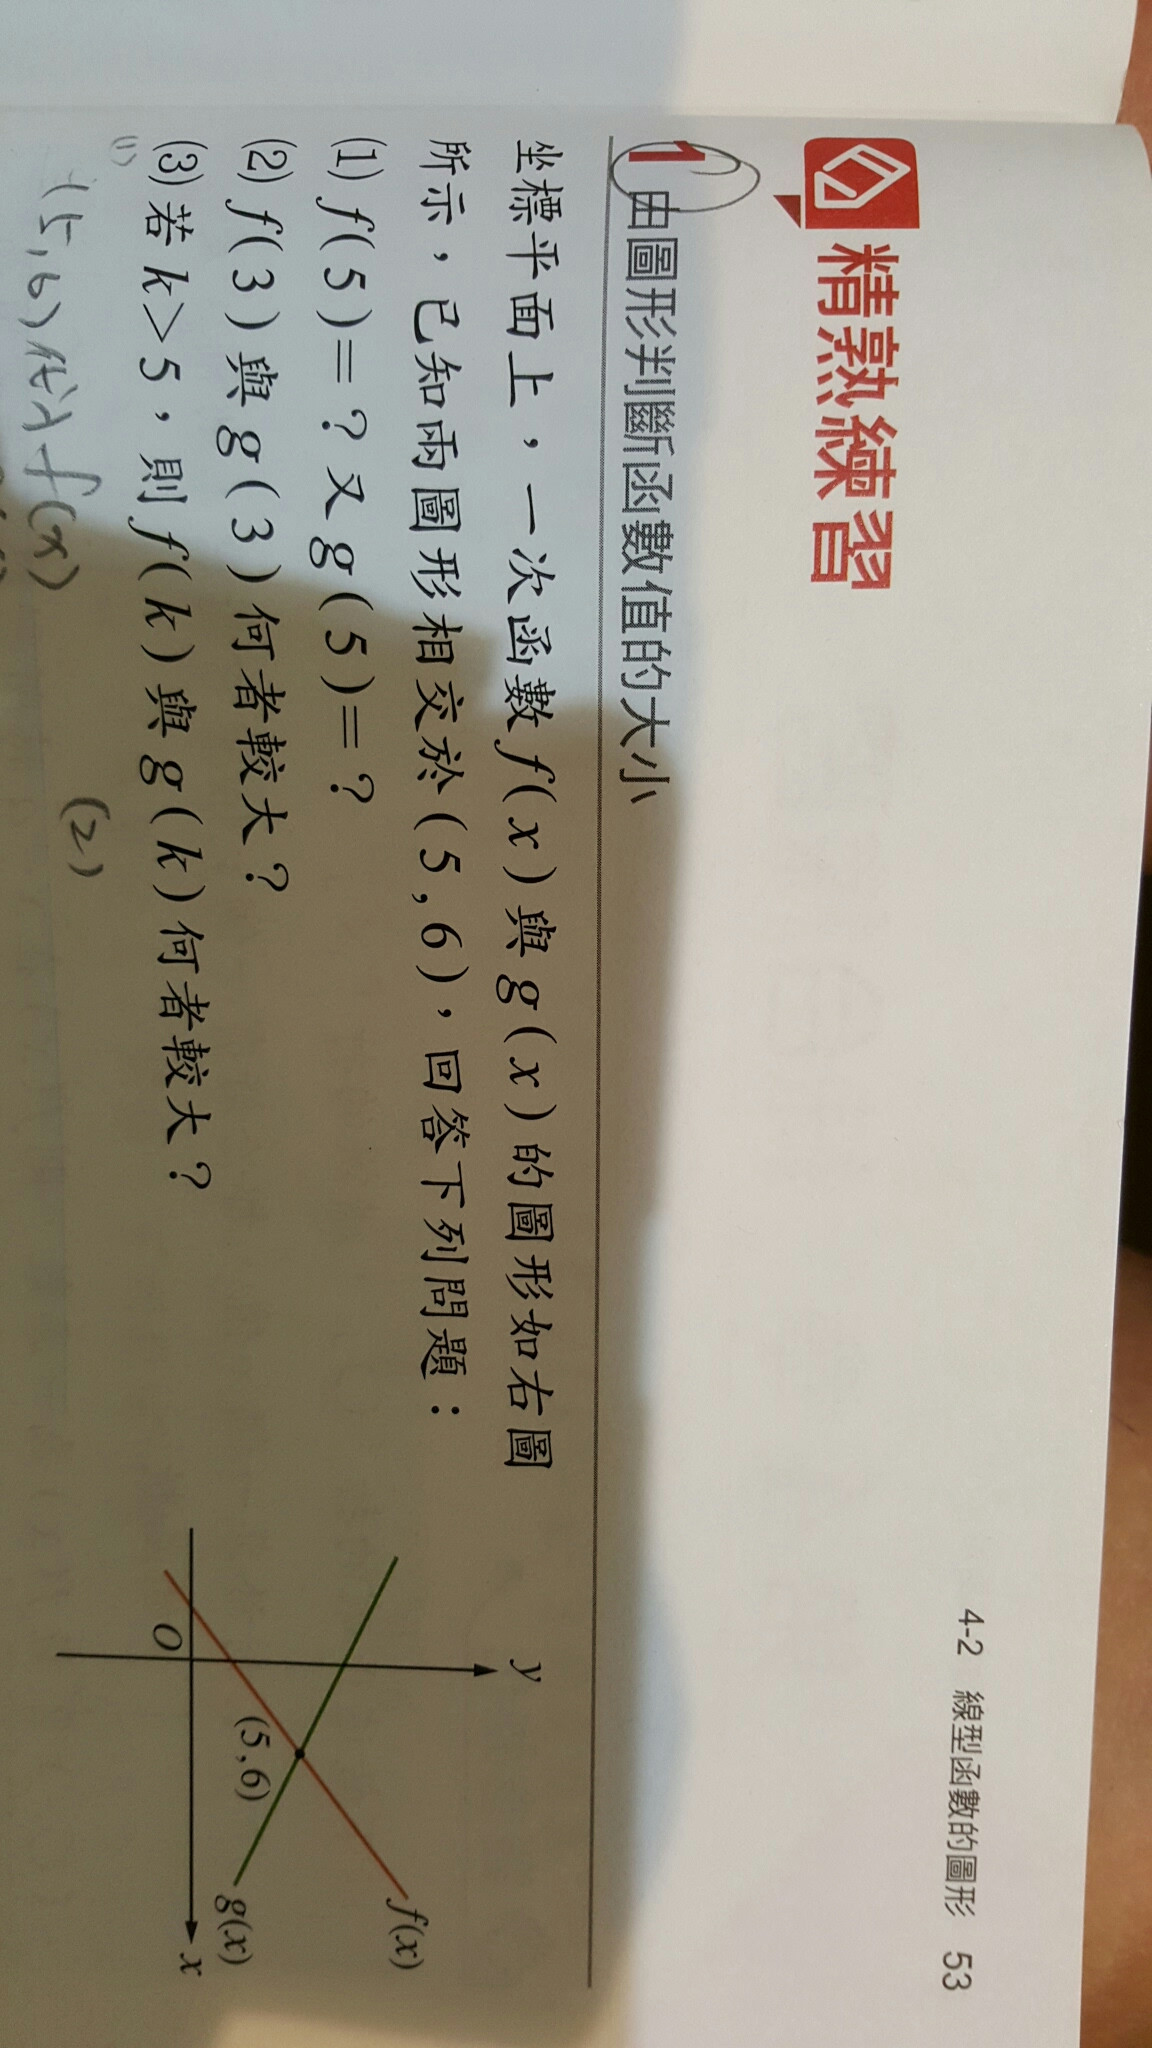 4-2 線型函數的圖形 53
精熟練習
1 由圖形判斷函數值的大小
坐標平面上，一次函數 f(x) 與 g(x) 的圖形如右圖
所示，已知兩圖形相交於(5,6)，回答下列問題：
(1) f(5)=？又 g(5)=？
(2) f(3) 與 g(3) 何者較大？
(3) 若 k>5，則 f(k) 與 g(k) 何者較大？
y
f(x)
(5,6)
g(x)
O
x
(1)
(5,6)代入f(x)
(2)